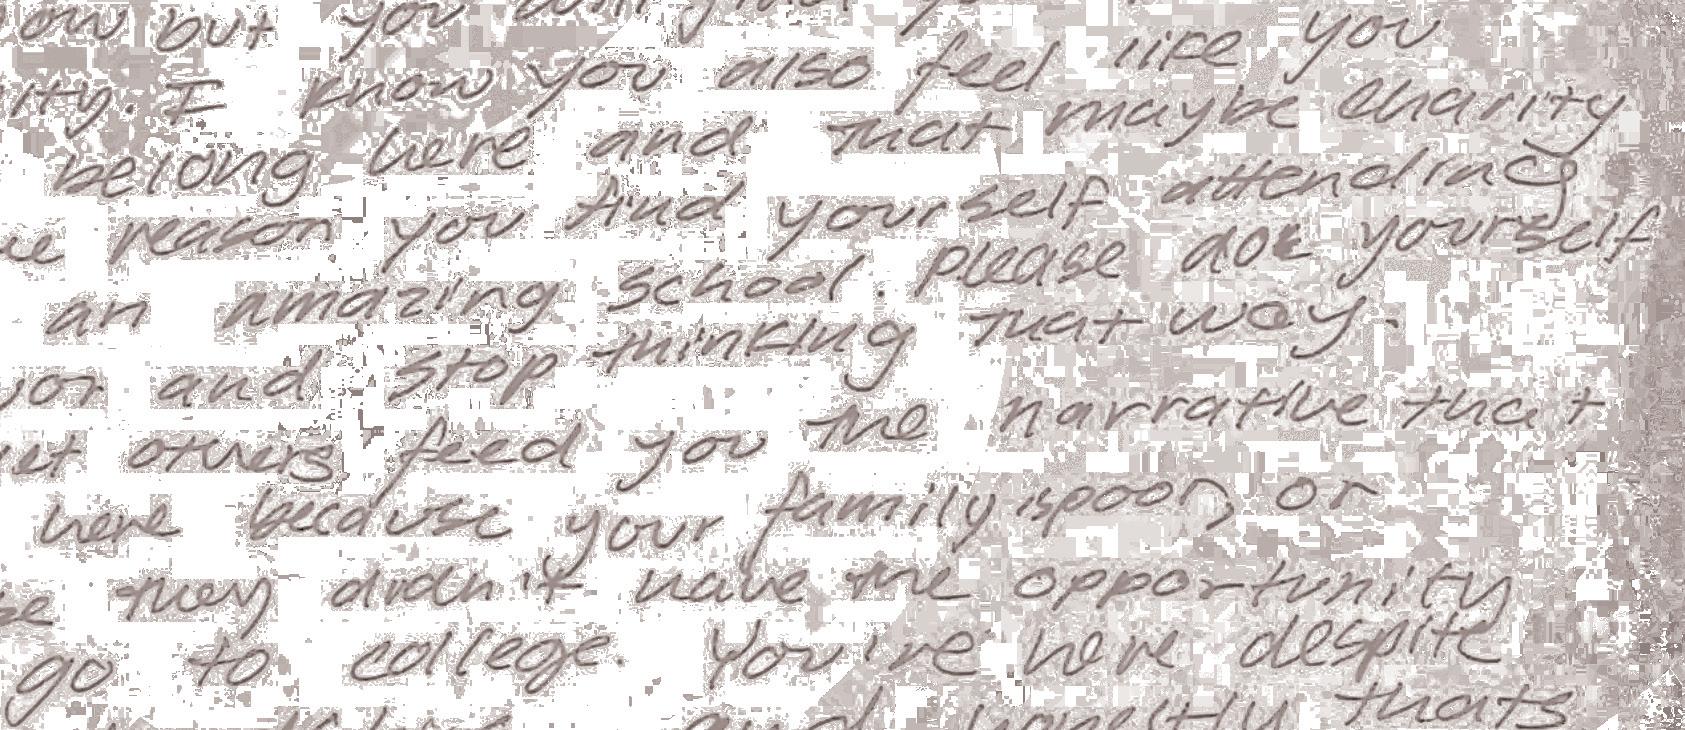 but you
I know you also feel like you
belong here and that maybe Charity
reason you find yourself attending
an amazing school. please do yourself
and stop thinking that way.
others feed you the narrative that
here because your family is poor, or
they didn't have the opportunity
go to college. You're here despite
and honestly thats